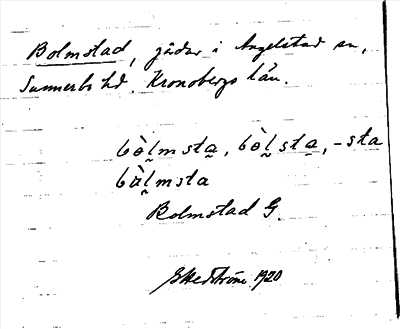 Bolmstad, gårdar i Angelstad sn,
Sunnerbo hd. Kronobergs län.
bòl̥msta̲, bòl̥sta̲, -sta
bàl̥msta
Bolmstad G.
G Hedström 1920